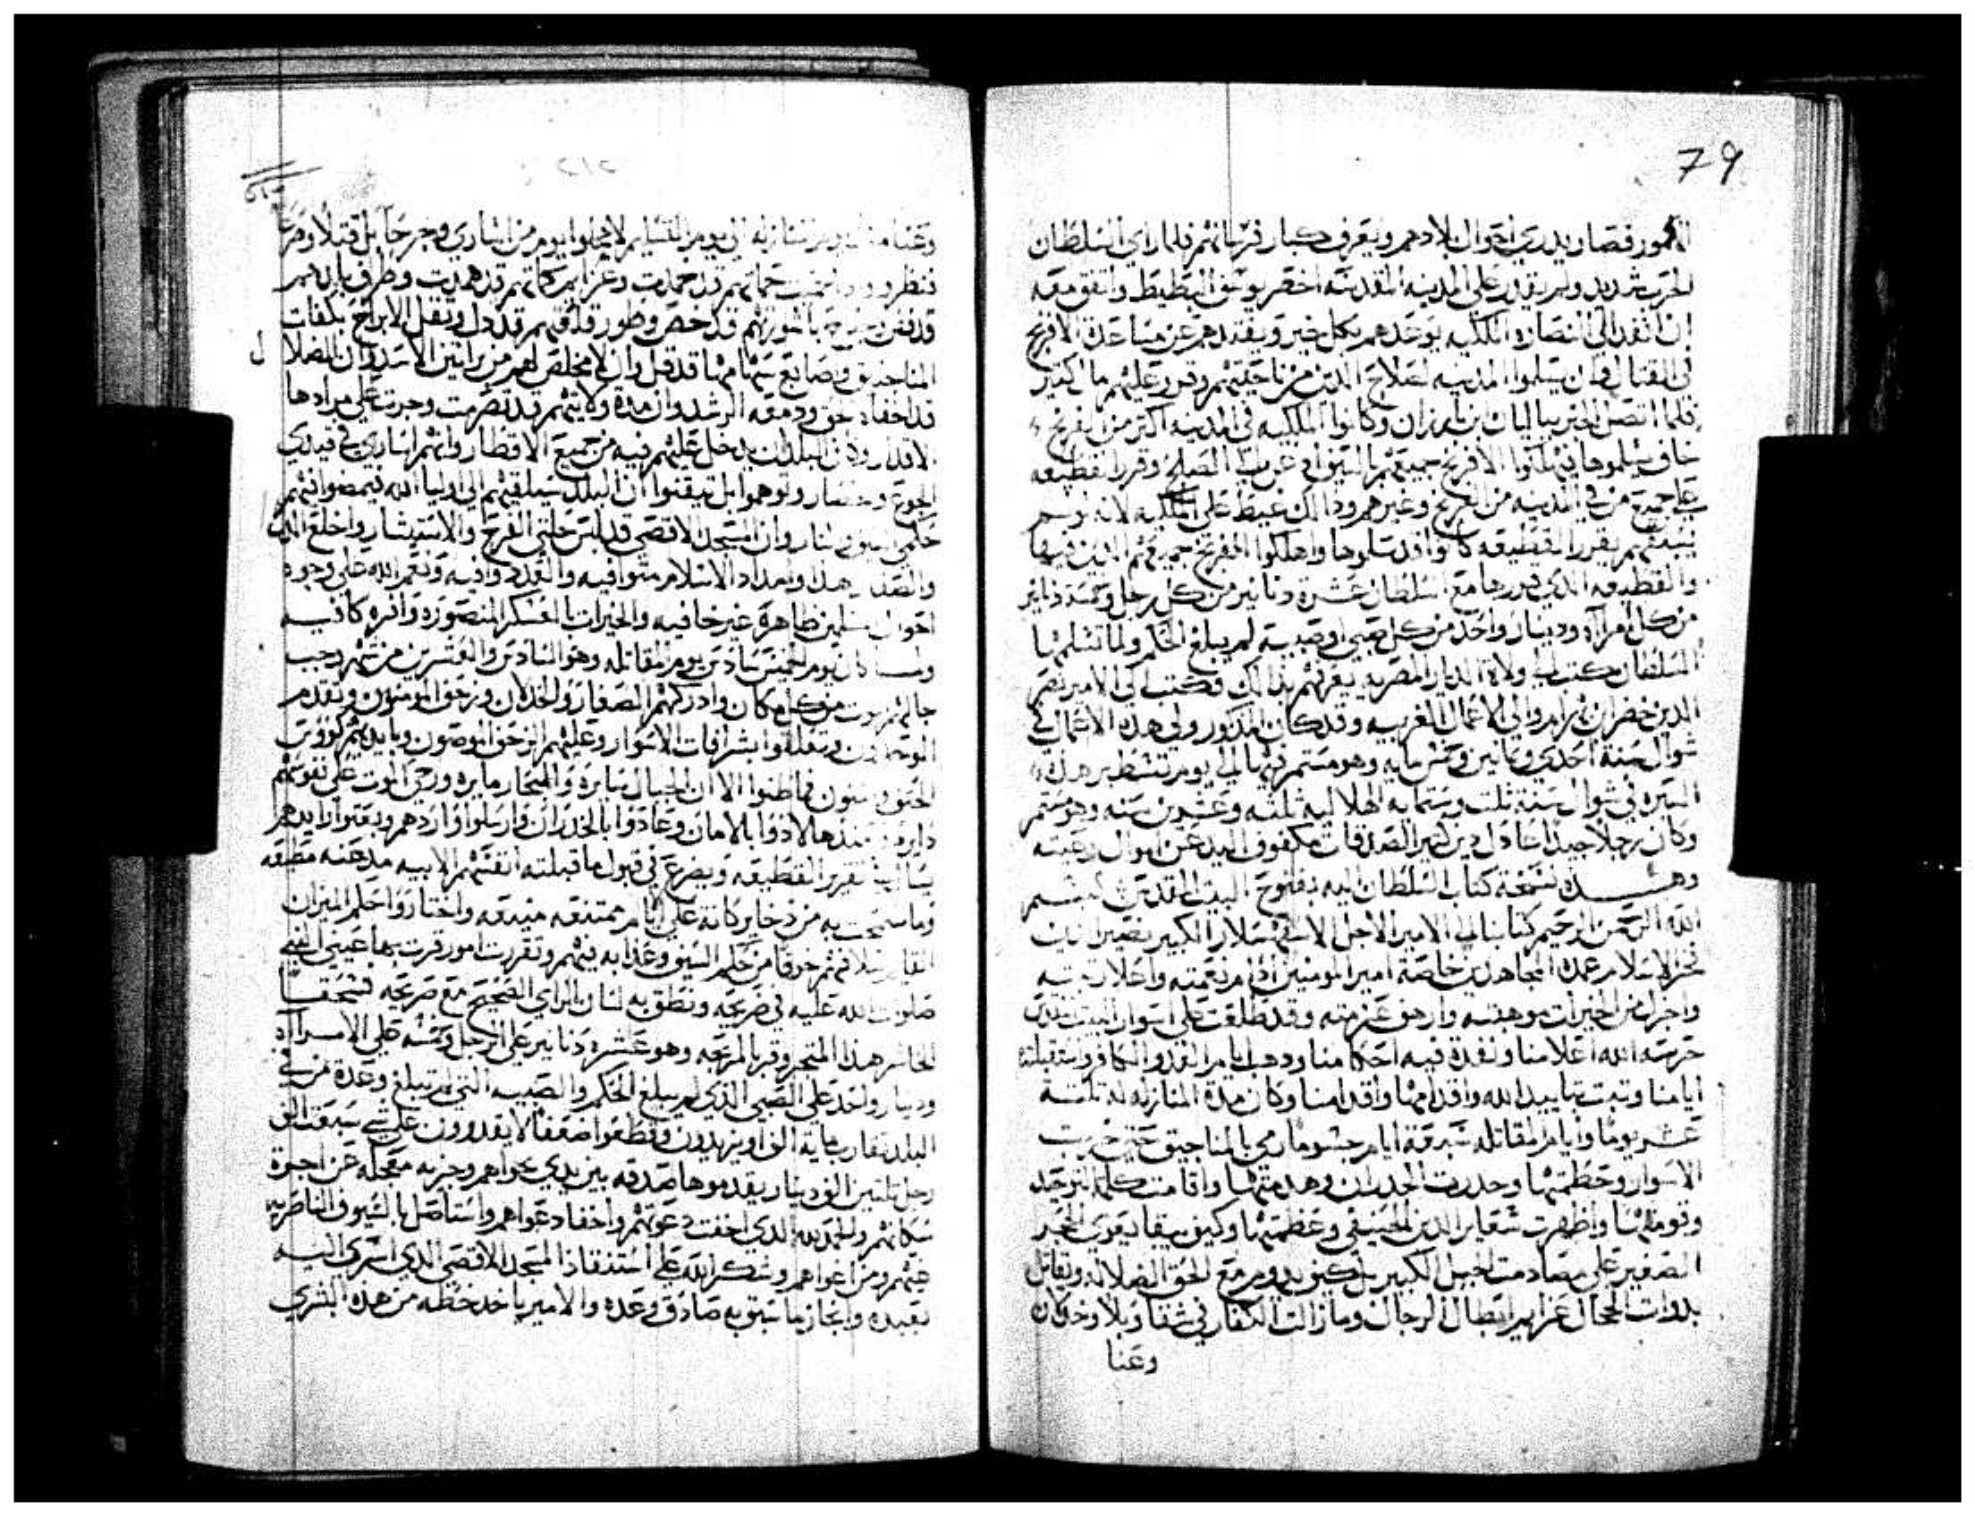 79
الامور فصار يدري احوال بلادهم ويعرف كبار فرسانهم فلما راي السلطان
الحرب شديد ولم يقدر علي المدينه المقدسه احضر يوسف البطيط واتفق معه
ان انفد الي النصاره الملكيه يوعدهم بكل خير ويقعدهم عن مساعدة الافرنج
في القتال وان يسلموا المدينه لصلاح الدين من ناحيتهم وقرر عليهم مال كتير
فلما اتصل الخبر بباليان بن بارزان وكانوا الملكيه في المدينه اكتر من الفرنج
خاف يسلموها فيهلكوا الافرنج جميعهم بالسيف طلب الصلح وقرر القطيعه
علي جميع من في المدينه من الفرنج وغيرهم ودالك غيظ علي الملكيه لانه لو لم
يسبقهم بقرر القطيعه كانوا قد سلوها واهلكوا الافرنج جميعهم الدين فيها
والقطيعه الدي قررها مع السلطان عشرة دنانير من كل رجل وخمسة دنانير
من كل امراه ودينار واحد من كل صبي وصبية لم يبلغ الحلم ولما تسلمها
السلطان كتب الي ولاة الديار المصريه يعرفهم بدالك وكتب الي الامير نصر
الدين خضر ان بهرام والي الاعمال الغربيه وقد كان المدكور ولي هده الاعمال في
شوال سنة احدي وتمانين وخمس مايه وهو مستمر فيها الي يوم تسطير هده
السيره في شوال سنة تلت وستمايه الهلاليه تلته وعشرين سنه وهو مستمر
وكان رجلا جيدا عادل دين كتير الصدقات مكفوف اليد عن اموال رعيته
وهده نسخة كتاب السلطان اليه بفتوح البيت المقدس بسم
الله الرحمن الرحيم كتابنا الي الامير الاجل الاسفهسلار الكبير نصير الدين
فخر الاسلام عمدة المجاهدين خاصة امير المومنين ادام نعمته واعلا رتبته
واجزل من الخيرات موهبته وارهف عزمته وقد طلعت علي اسوار البيت المقدس
حرسه الله اعلامنا ونفدة فيه احكامنا ودهب ايام العدو الكافر واستقبلته
ايامنا وتبت بتاييد الله واقدامها واقدامنا وكان مدة المنازله له تلتة
عشر يوما وايام المقاتله سبعة ايام رمي بالمناجيق حتي خربت
الاسوار وحطمتها وحدرت الجدران وهدمتها واقامت كلمة التوحيد
وقومتها واظهرت شعاير الدين الحنيفي وعظمتها وكيف يبقا يقوي الحجر
الصغير علي مصادمت الجبل الكبير بل كيف يدوم مع الحق الضلاله ويقاتل
بدوات الحجال عزايم ابطال الرجال وما زالت الكفار في شقا وبلا وخدلان
وعنا
وعنا من لا يحلوا يوم من اساري وجرحا بل قتلا وصرعا
حماتهم قد خمدت وعزايم كماتهم قد همدت وطرف بابهم
قد وسور قد دل ونقل الابراج بكفات
المناجنيق وصايع سهامها قد قل وان لا مخلص لهم من براتين الاسد وان الضلال
قد اخفاه حق ودمغه الرشد وان مدة ولايتهم قد تصرمت وجرت علي مرادها
الاقدار وان البلد يدخل عليهم فيه من جميع الاقطار وانهم اساري في قيدي
الجوع والحصار وتوهموا بل تيقنوا ان البلد ستلقيهم الي اوليا الله فيمضوا فيهم
حكمي السيف والنار وان المسجد الاقصي قد لبس حلتي الفرح والاستبشار واخلع
هدا وامداد الاسلام متوافيه والعدد وافيه ونعم الله علي وجوه
احوال المسلمين ظاهرة غير خافيه والخيرات بالعسكر المنصوره وافره كافيه
ولما كان يوم الخميس سادس يوم المقاتله وهو السادس والعشرين من شهر رجب
جاهم الموت من كل مكان وادركهم الصغار والخدلان وزحف المومنون وتقدم
الموحدون وتعلقوا بشرافات الاسوار وعليهم الزحف الموضون وبايديهم كووس
الحتف والمنون فما ظنوا الا ان الجبال سايره والحجار مايره ورحي الموت علي نفوسهم
دايره فعندها لادوا بالامان وعادوا بالخدران وارسلوا واردهم وبعتوا رايدهم
يسال في تقرير القطيعه ويضرع في قبول ما قبلته انفسهم الابيه مدعنه مطيعه
وما سمحت به من دخاير كانة علي الايام ممتنعه منيعه واختاروا حكم الميزان
لسلامتهم خوفا من حكم السيف وعدابه فيهم وتقررت امور قرت بها عين النبي
صلوات الله عليه في ضريحه ونطق به لسان الراي الصحيح مع صريحه
هدا المتجر وقرب المرتجه وهو عشرة دنانير علي الرجل وخمسه علي الامراه
ودينار واحد علي الصبي الدي لم يبلغ الحلم والصبيه التي لم تبلغ وعدة من في
البلد تقارب ماية الف او يزيدون وقطعوا ضعفا لا يقدرون علي شي سبعة الف
رجل بتلتين الف دينار يقدموها صدقه بين يدي نجواهم وجزيه معجله عن اجرة
سكانهم والحمد لله الدي اخفت دعوتهم واخفا دعواهم واستاصل بالسيوف الناصريه
غيهم ومن اغواهم وشكرا لله علي استنقاد المسجد الاقصي الدي اسري اليه
بعبده وانجاز ما سبق به صادق وعده والامير ياخد حظه من هده البشري